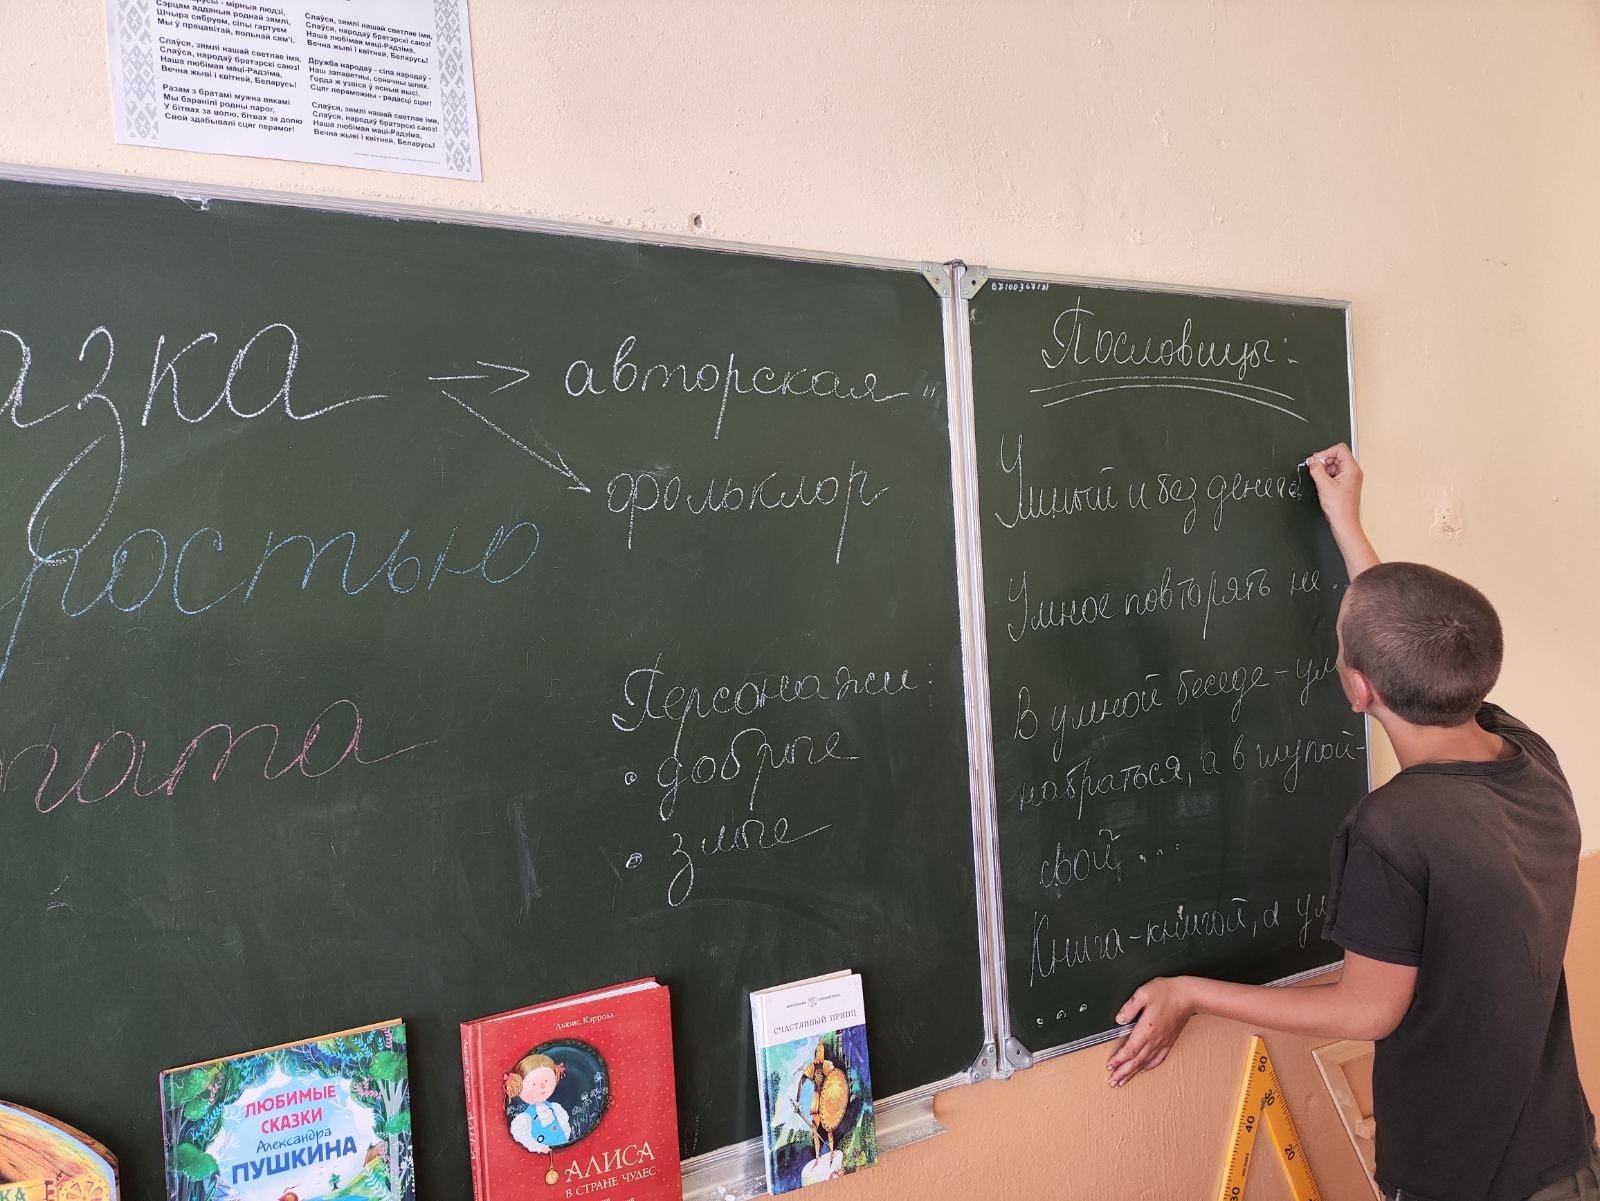 мірныя людзі,
Сэрцам адданыя роднай зямлі,
Шчыра сябруем, сілы гартуем
Мы ў працавітай, вольнай сям'і.
Слаўся, зямлі нашай светлае імя,
Слаўся, народаў братэрскі саюз!
Наша любімая маці-Радзіма,
Вечна жыві і квітней, Беларусь!
Разам з братамі мужна вякамі
Мы баранілі родны парог,
У бітвах за волю, бітвах за долю
Свой здабывалі сцяг перамог!
Слаўся, зямлі нашай светлае імя,
Слаўся, народаў братэрскі саюз!
Наша любімая маці-Радзіма,
Вечна жыві і квітней, Беларусь!
Дружба народаў - сіла народаў -
Наш запаветны, сонечны шлях.
Горда ж узвіся ў ясныя высі,
Сцяг пераможны - радасці сцяг!
Слаўся, зямлі нашай светлае імя,
Слаўся, народаў братэрскі саюз!
Наша любімая маці-Радзіма,
Вечна жыві і квітней, Беларусь!
азка → авторская
фольклор
ростью
Персонажи:
• добрые
• злые
Пословицы:
Умный и без денег
Умное повторять не ..
В умной беседе - ум
набраться, а в глупой -
свой ...
Книга - книгой, а ум
...
ЛЮБИМЫЕ
СКАЗКИ
Александра
ПУШКИНА
Льюис Кэрролл
АЛИСА
В СТРАНЕ ЧУДЕС
ШКОЛЬНАЯ БИБЛИОТЕКА
СЧАСТЛИВЫЙ ПРИНЦ
50
40
30
30
20